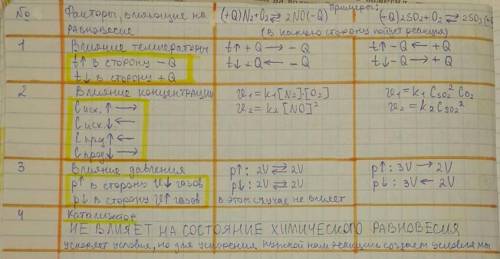 No Факторы, влияющие на равновесие
Примеры:
(+Q)N₂+O₂ ⇄ 2NO(-Q) (-Q)2SO₂+O₂ ⇄ 2SO₃
(В какую сторону пойдет реакция)
1 Влияние температуры
t↑ в сторону -Q
t↓ в сторону +Q
t↑ +Q → -Q
t↓ +Q ← -Q
t↑ -Q ← +Q
t↓ -Q → +Q
2 Влияние концентрации
Cисх. ↑ →
Cисх ↓ ←
Cпрд ↑ ←
Cпрод ↓ →
v₁ = k₁[N₂]·[O₂]
v₂ = k₂[NO]²
v₁ = k₁ C²SO₂ CO₂
v₂ = k₂ C²SO₃
3 Влияние давления
p↑ в сторону V↓ газов
p↓ в сторону V↑ газов
p↑: 2V ⇄ 2V
p↓: 2V ⇄ 2V
В этом случае не влияет
p↑: 3V → 2V
p↓: 3V ← 2V
4 Катализатор
НЕ ВЛИЯЕТ НА СОСТОЯНИЕ ХИМИЧЕСКОГО РАВНОВЕСИЯ
ускоряет условия, но для ускорения нужной нам реакции создаем условия мы